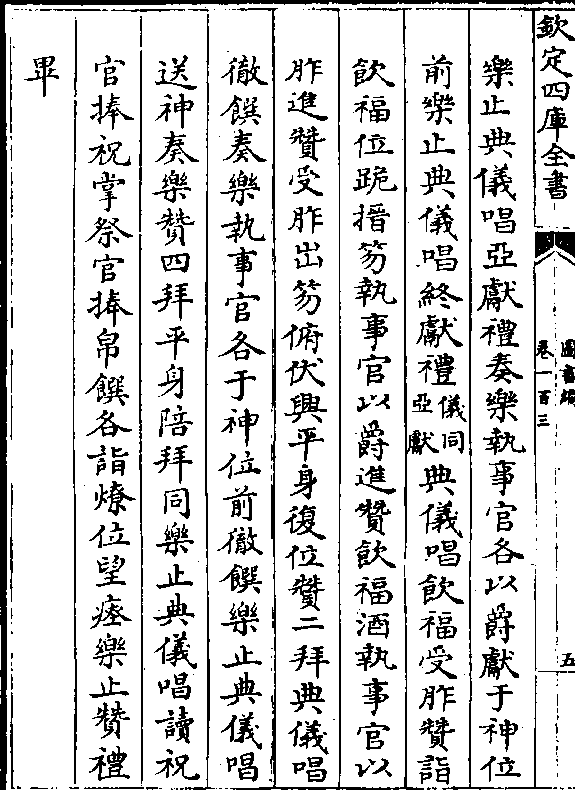 欽定四庫全書
圖書編
卷一百三
五
樂止典儀唱亞獻禮奏樂執事官各以爵獻于神位
前樂止典儀唱終獻禮儀同亞獻典儀唱飲福受胙贊詣
飲福位跪搢笏執事官以爵進贊飲福酒執事官以
胙進贊受胙出笏俯伏興平身復位贊二拜典儀唱
徹饌奏樂執事官各于神位前徹饌樂止典儀唱
送神奏樂贊四拜平身陪拜同樂止典儀唱讀祝
官捧祝掌祭官捧帛饌各詣燎位望瘞樂止贊禮
畢